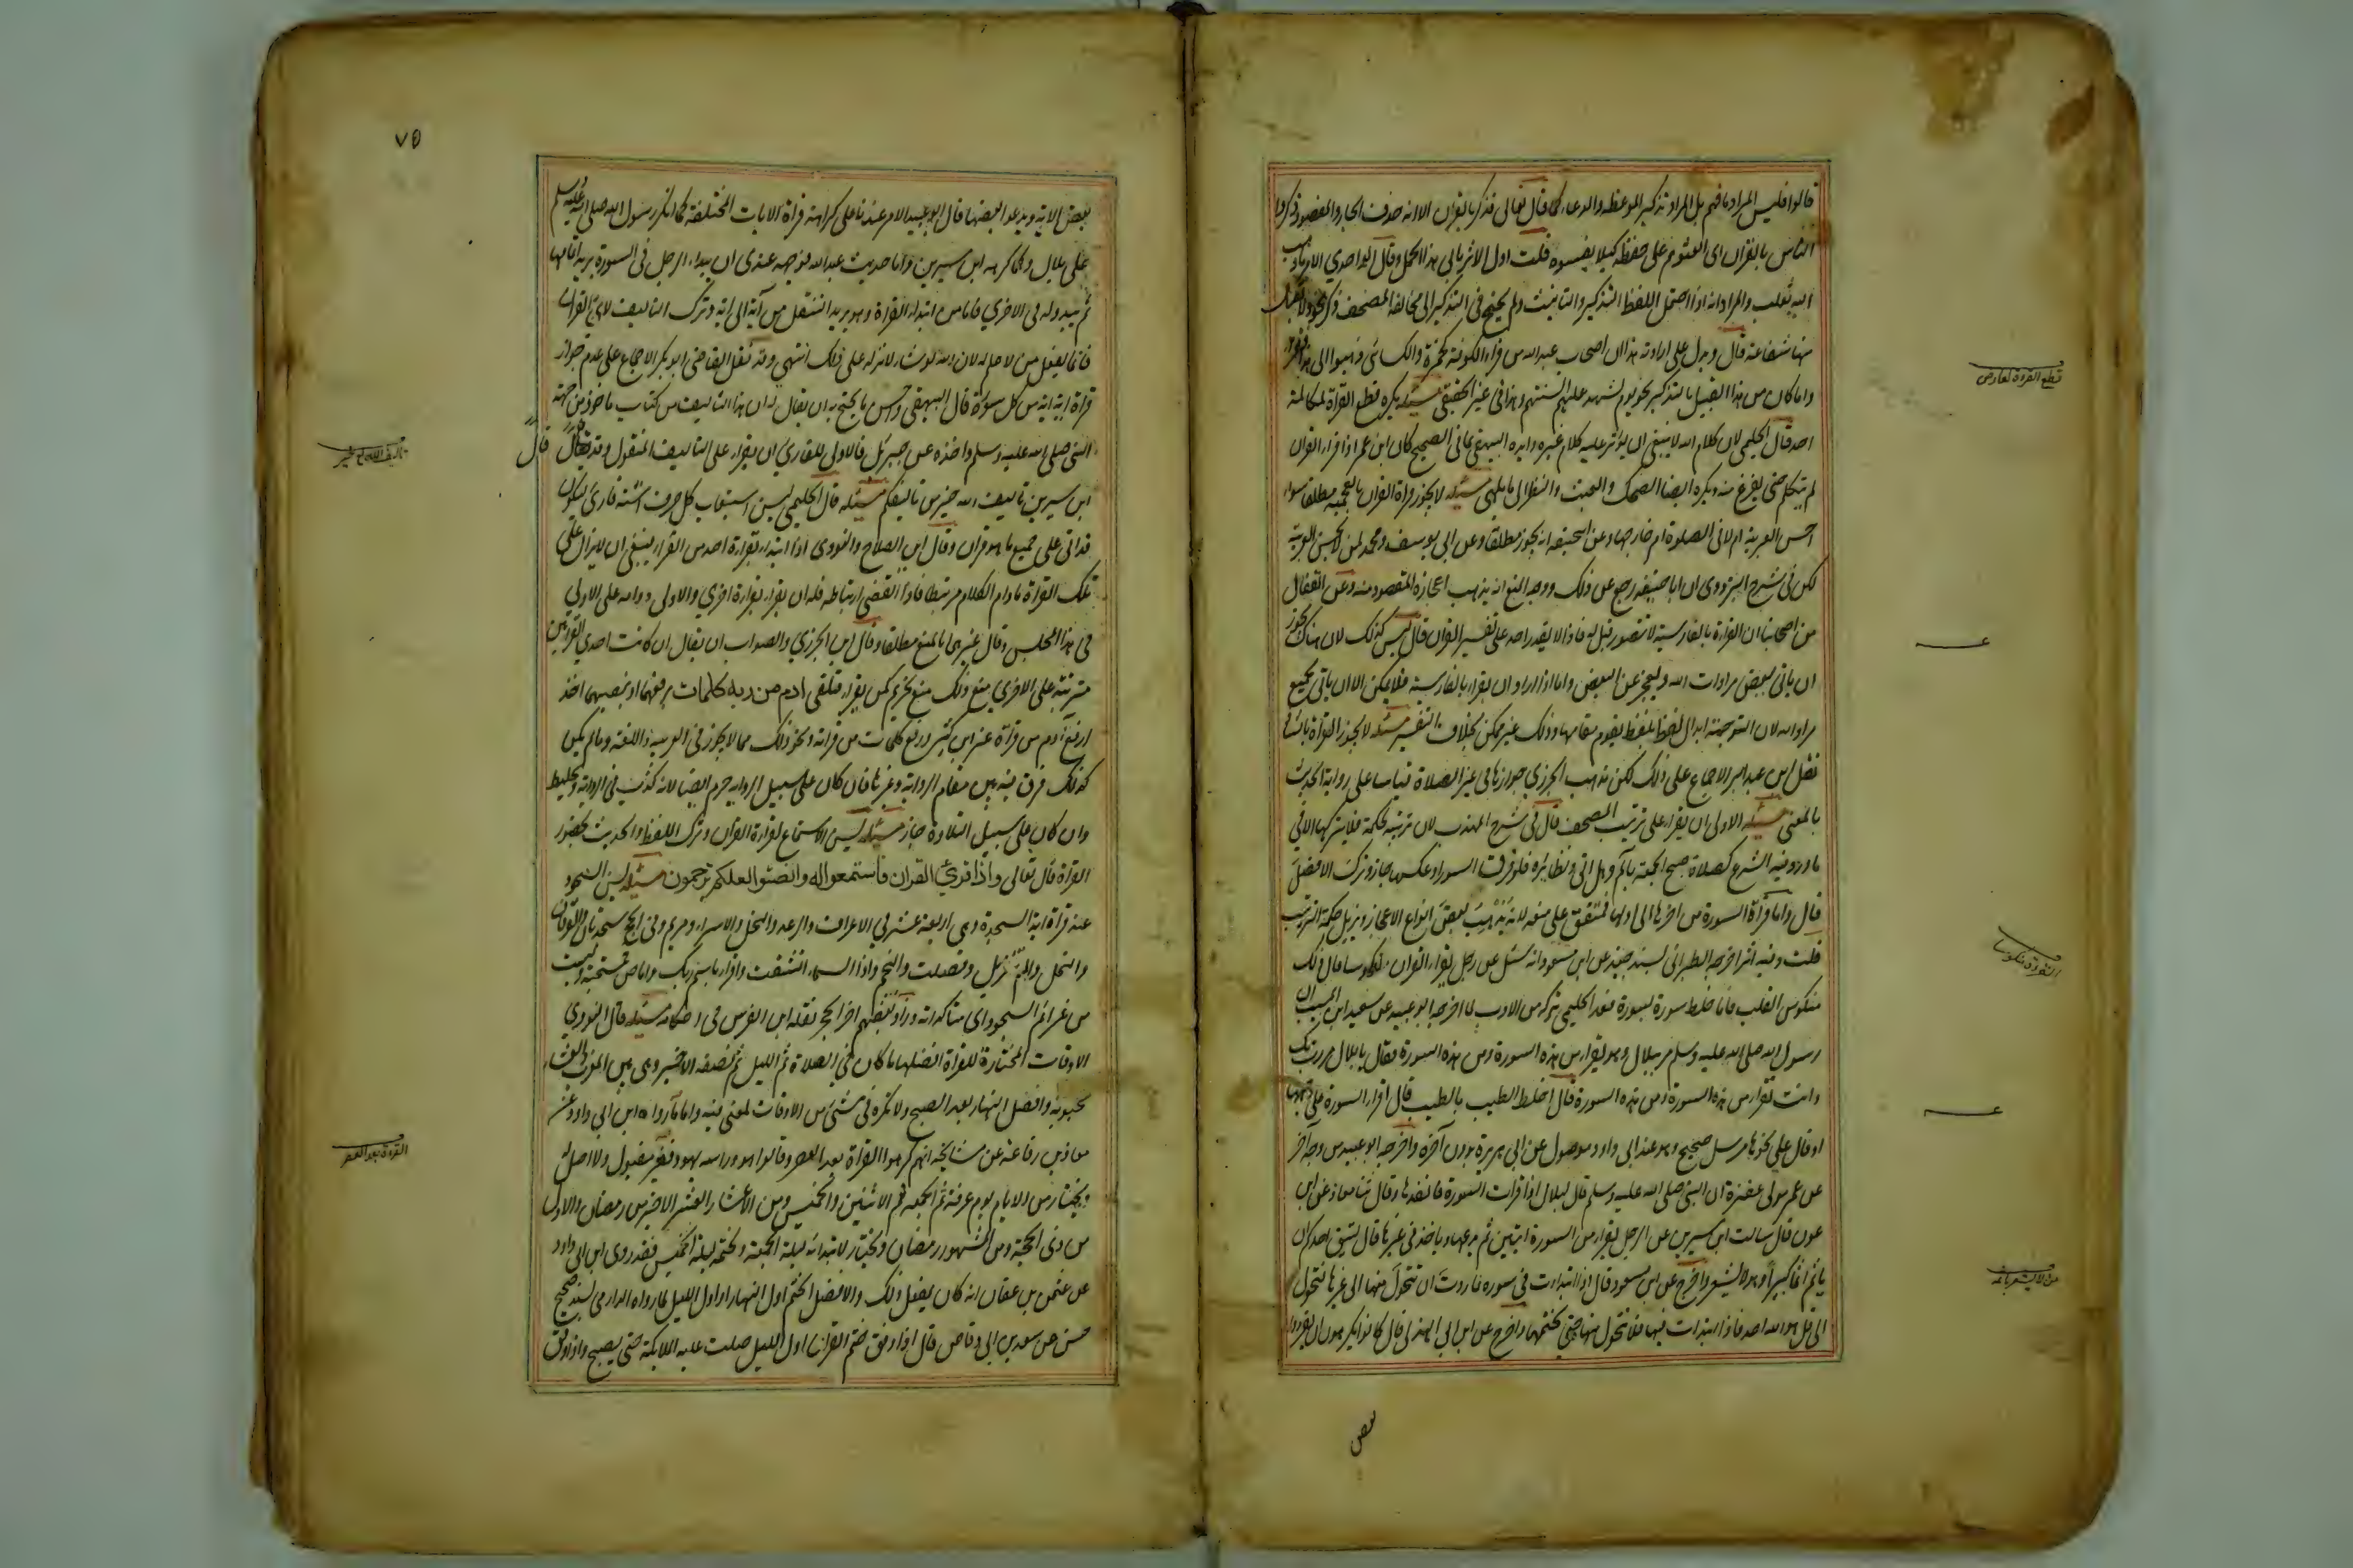 قالوا فليس المراد ما فهم بل المراد تذكير الموعظة والدعاء كما قال تعالى فذكر بالقران الا انه حذف الجار والمقصود ذكروا
الناس بالقران اى ابعثوهم على حفظه كيلا ينسوه قلت اول الاثر يابى هذا الحمل وقال الواحدي الامر ما ذهب
اليه ثعلب والمراد انه اذا احتمل اللفظ التذكير والتانيث ولم يحتج فى التذكير الى مخالفة المصحف ذكر نحو ولا يقبل
منها شفاعة قال ويدل على ارادته هذا ان اصحاب عبد الله من قراء الكوفة كحمزة والكسائى ذهبوا الى هذا فقرؤا
واما كان من هذا القبيل بالتذكير نحو يوم يشهد عليهم السنتهم وهذا فى غير الحقيقي مسئلة يكره قطع القراة لمكالمة
احد قال الحليمى لان كلام الله لا ينبغى ان يؤثر عليه كلام غيره وايده البيهقى بما فى الصحيح كان ابن عمر اذا قراء القران
لم يتكلم حتى يفرغ منه ويكره ايضا الضحك والعبث والنظر الى ما يلهى مسئلة لا يجوز قراة القران بالعجمية مطلقا سواء
احسن العربية ام لا فى الصلوة ام خارجها وعن ابى حنيفة انه يجوز مطلقا وعن ابى يوسف ومحمد لمن لا يحسن العربية
لكن فى شرح البزدوى ان ابا حنيفة رجع عن ذلك ووجه المنع انه يذهب اعجازه المقصود منه وعن القفال
من اصحابنا ان القراة بالفارسية لا تتصور قيل له فاذا لا يقدر احد على تفسير القران قال ليس كذلك لان هناك يجوز
ان ياتى ببعض مرادات الله ويعجز عن البعض واما اذا اراد ان يقراء بالفارسية فلا يمكن الا ان ياتى بجميع
مراد الله لان الترجمة ابدال لفظ بلفظ يقوم مقامها وذلك غير ممكن بخلاف التفسير مسئلة لا يجوز القراة بالشاذ
نقل ابن عبد البر الاجماع على ذلك لكن مذهب الجزري جوازها فى غير الصلاة قياسا على رواية الحديث
بالمعنى مسئلة الاولى ان يقراء على ترتيب المصحف قال فى شرح المهذب لان ترتيبه لحكمة فلا يتركها الا فى
ما ورد فيه الشرع كصلاة صبح الجمعة بالم وهل اتى ونظائره فلو فرق السور او عكسها جاز وترك الافضل
قال واما قراة السورة من اخرها الى اولها فمتفق على منعه لانه يذهب بعض انواع الاعجاز ويزيل حكمة الترتيب
قلت وفيه اثر اخرجه الطبرانى بسند جيد عن ابن مسعود انه سئل عن رجل يقراء القران منكوسا قال ذلك
منكوس القلب فاما خلط سورة بسورة فعد الحليمى تركه من الادب لما اخرجه ابو عبيد عن سعيد ابن المسيب ان
رسول الله صلى الله عليه وسلم مر ببلال وهو يقراء من هذه السورة ومن هذه السورة فقال يا بلال مررت بك
وانت تقراء من هذه السورة ومن هذه السورة قال اخلط الطيب بالطيب قال اقراء السورة على وجهها
او قال على نحوها مرسل صحيح وهو عند ابى داود موصول عن ابى هريرة بدون آخره واخرجه ابو عبيد من وجه آخر
عن عمر مولى غفرة ان النبى صلى الله عليه وسلم قال لبلال اذا قرات السورة فانفذها وقال ثنا معاذ عن ابن
عون قال سالت ابن سيرين عن الرجل يقراء من السورة ايتين ثم يدعها وياخذ فى غيرها قال ليتق احدكم ان
ياثم اثما كبيرا وهو لا يشعر واخرج عن ابن مسعود قال اذا ابتدات فى سورة فاردت ان تتحول منها الى غيرها فتحول
الى قل هو الله احد فاذا ابتدات فيها فلا تتحول منها حتى تختمها واخرج عن ابن ابى الهذيل قال كانوا يكرهون ان يقرؤا
بعض
قطع القروة لعارض
القروة منكوسا
٧٥
بعض الاية ويدعوا بعضها قال ابو عبيد الامر عندنا على كراهة قراة الايات المختلفة كما انكر رسول الله صلى الله عليه وسلم
على بلال وكما كرهه ابن سيرين واما حديث عبد الله فوجهه عندى ان يبداء الرجل فى السورة يريد اتمامها
ثم يبدو له فى الاخري فاما من ابتداء القراة وهو يريد التنقل من آية الى اية وترك التاليف لاي القران
فانما يفعله من لا علم له لان الله لو شاء لانزله على ذلك انتهى وقد نقل القاضى ابو بكر الاجماع على عدم جواز
قراة اية اية من كل سورة قال البيهقى واحسن ما يحتج به ان يقال ان هذا التاليف من كتاب ماخوذ من جهة
النبى صلى الله عليه وسلم واخذه عن جبرئل فالاولى للقارئ ان يقراء على التاليف المنقول وقد قال
قال
ابن سيرين تاليف الله خير من تاليفكم مسئلة قال الحليمى يسن استيعاب كل حرف اثبته قارئ ليكون
قد اتى على جميع ما هو قران وقال ابن الصلاح والنووى اذا ابتداء بقراءة احد من القراء ينبغى ان لا يزال على
تلك القراة ما دام الكلام مرتبطا فاذا انقضى ارتباطه فله ان يقراء بقراءة اخرى والاولى دوامه على الاولى
فى هذا المجلس وقال غيرهما بالمنع مطلقا وقال ابن الجزري والصواب ان يقال ان كانت احدي القراتين
مترتبة على الاخرى منع ذلك منع تحريم كمن يقراء فتلقى ادم من ربه كلمات برفعهما او بنصبهما اخذ
رفع آدم من قراة غير ابن كثير ورفع كلمات من قراته ونحو ذلك مما لا يجوز فى العربية واللغة وما لم يكن
كذلك فرق فيه بين مقام الرواية وغيرها فان كان على سبيل الرواية حرم ايضا لانه كذب فى الرواية وتخليط
وان كان على سبيل التلاوة جاز مسئلة يسن الاستماع لقراءة القران وترك اللغط والحديث بحضور
القراة قال تعالى واذا قرئ القران فاستمعوا له وانصتوا لعلكم ترحمون مسئلة يسن السجود
عند قراة اية السجدة وهى اربعة عشر فى الاعراف والرعد والنحل والاسراء ومريم وفى الحج سجدتان والفرقان
والنمل والم تنزيل وفصلت والنجم واذا السماء انشقت واقراء باسم ربك واما ص فمستحبة وليست
من عزائم السجود اى متاكداته وزاد بعضهم اخر الحجر نقله ابن الفرس فى احكامه مسئلة قال النووي
الاوقات المختارة للقراة افضلها ما كان فى الصلاة ثم الليل ثم نصفه الاخير وهى بين المغرب والعشاء
محبوبة وافضل النهار بعد الصبح ولا تكره فى شئ من الاوقات لمعنى فيه واما ما رواه ابن ابى داود عن
معاذ بن رفاعة عن مشايخه انهم كرهوا القراة بعد العصر وقالوا هو دراسة يهود فغير مقبول ولا اصل له
ويختار من الايام يوم عرفة ثم الجمعة ثم الاثنين والخميس ومن الاعشار العشر الاخير من رمضان والاول
من ذى الحجة ومن الشهور رمضان ويختار لابتدائه ليلة الجمعة ولختمه ليلة الخميس فقد روى ابن ابى داود
عن عثمن بن عفان انه كان يفعل ذلك والافضل الختم اول النهار او اول الليل لما رواه الدارمى بسند صحيح
حسن عن سعد بن ابى وقاص قال اذا وافق ختم القران اول الليل صلت عليه الملائكة حتى يصبح واذا وافق
تاليف الله خير
القروة بعد العصر